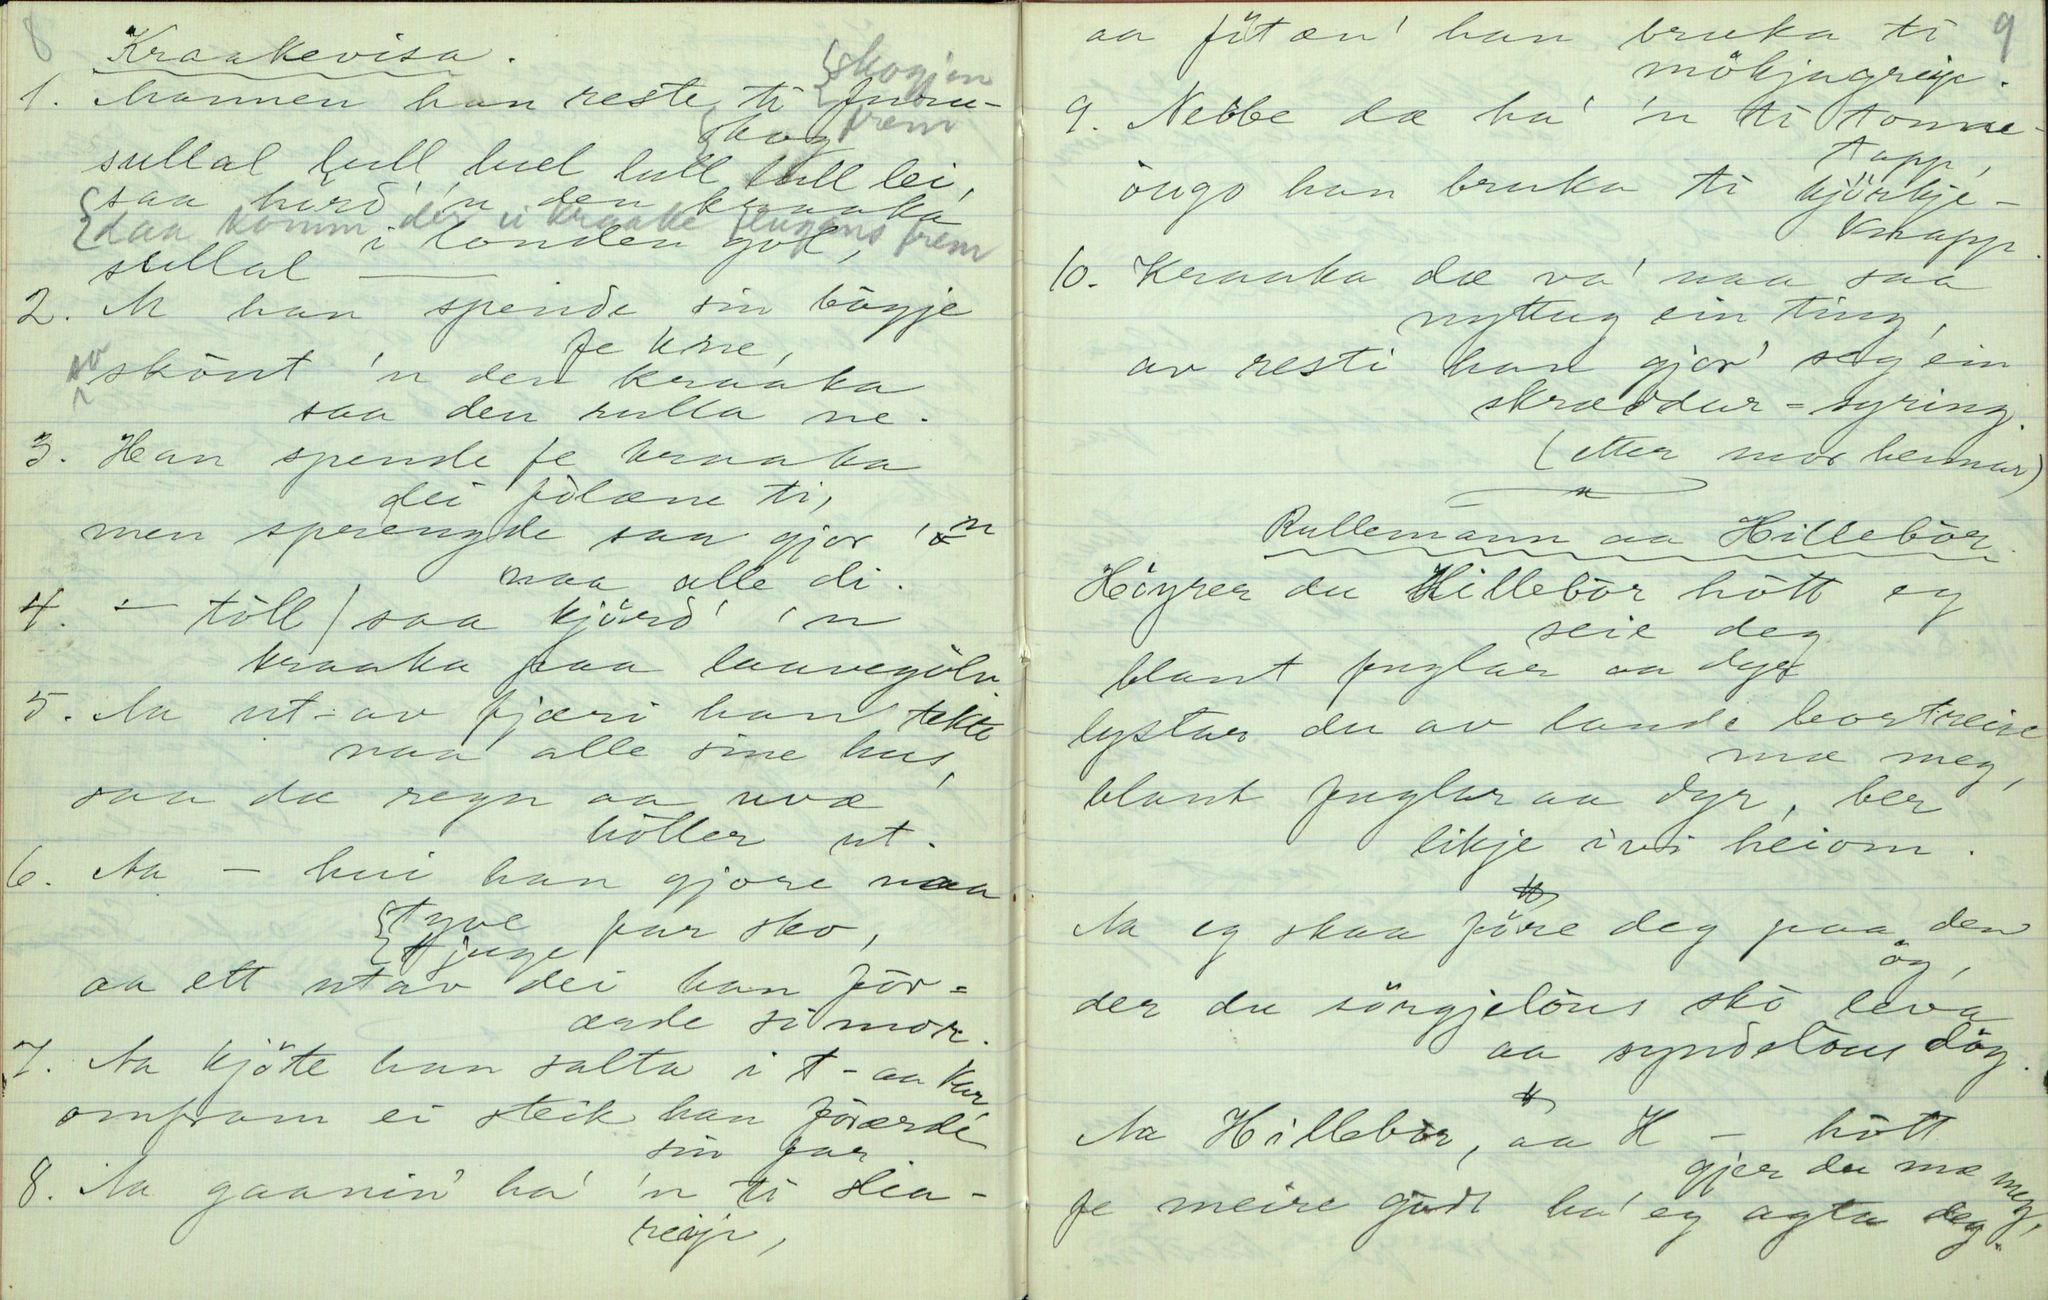 8
Kraakevisa.
{skogjen
1. Mannen han reste ti furu-
{skog frem
sullal lull lull lull lull lei,
{saa hørd' 'n den kraaka
{daa komm der ei kraake flugans frem
i londen gol,
sullal —
2. Aa han spende sin bögje
fe kne,
saa skönt 'n den kraaka
saa den rulla ne.
3. Han spende fe kraaka
dei fölæne ti,
men sprengde saa gjor 'n
naa alle di.
4. – töll / saa kjörd' 'n
kraaka paa laavegölv.
5. Aa ut-av fjæri han tekte
naa alle sine hus,
saa dæ regn aa uvæ'
höller ut.
6. Aa – hui han gjore naa
{tyve par sko,
{tjuge
aa ett utav dei han för=
ærde si mor.
7. Aa kjöte han salta i t- aa kar,
omfram ei steik han förærde
sin far.
8. Aa gaanin' ha' 'n ti slia-
reip,
9
aa föt æn' han bruka ti
mökjagreip.
9. Nebbe dæ ha' 'n ti tonne-
tapp,
öugo han bruka ti kjörkje-
knapp.
10. Kraaka dæ va' naa saa
nyttug ein ting,
av resti han gjor' seg ein
skræddur=syring.
(etter mor hennar)
Rullemann aa Hillebör.
Höyrer du Hillebör hött eg
seie deg
blant fuglar aa dyr
lystar du av lande bortreise
mæ meg,
blant fuglar aa dyr, ber
likje ivi heiom.
Aa eg skaa före deg paa den
öy,
der du sörgjelöus skö leva
aa syndelöus döy.
Aa Hillebör, aa H – hött
gjer du mæ meg,
fe meire godt ha' eg agta deg.